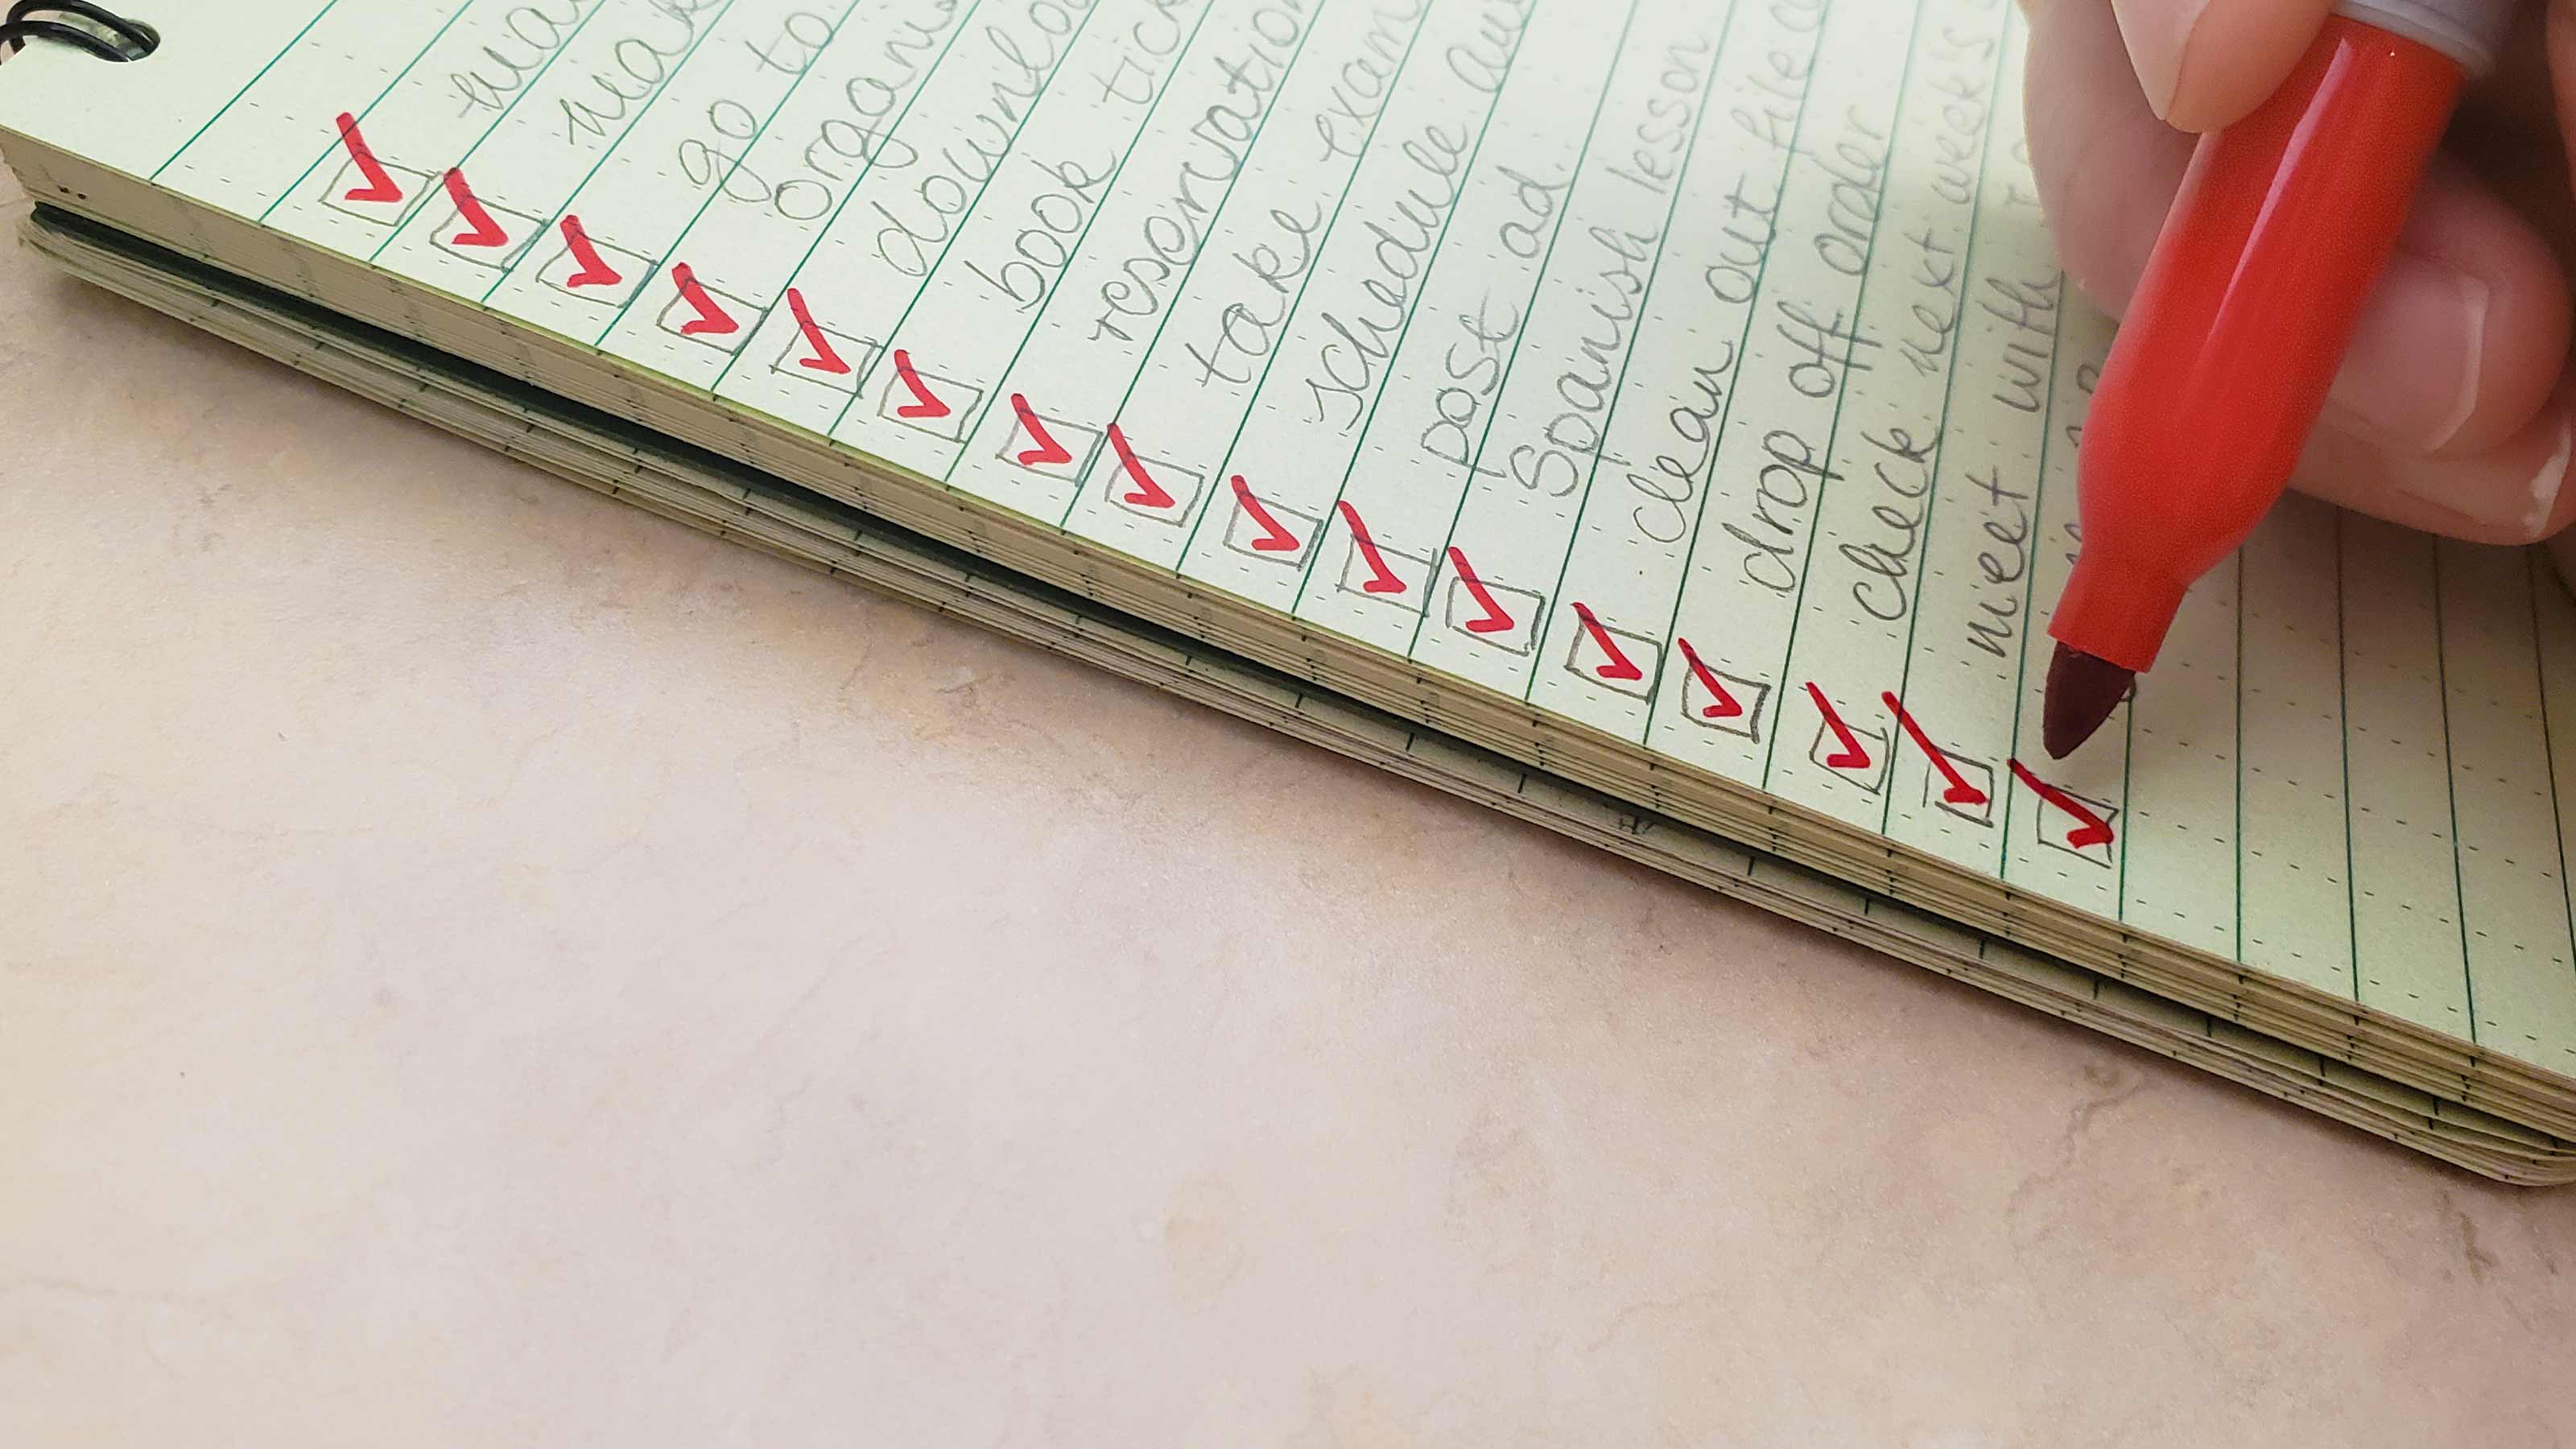 mak
go to
organis
downloa
book tick
reservation
take exam
schedule
post ad.
Spanish lesson
clean out file
drop off order
check next weeks
meet with